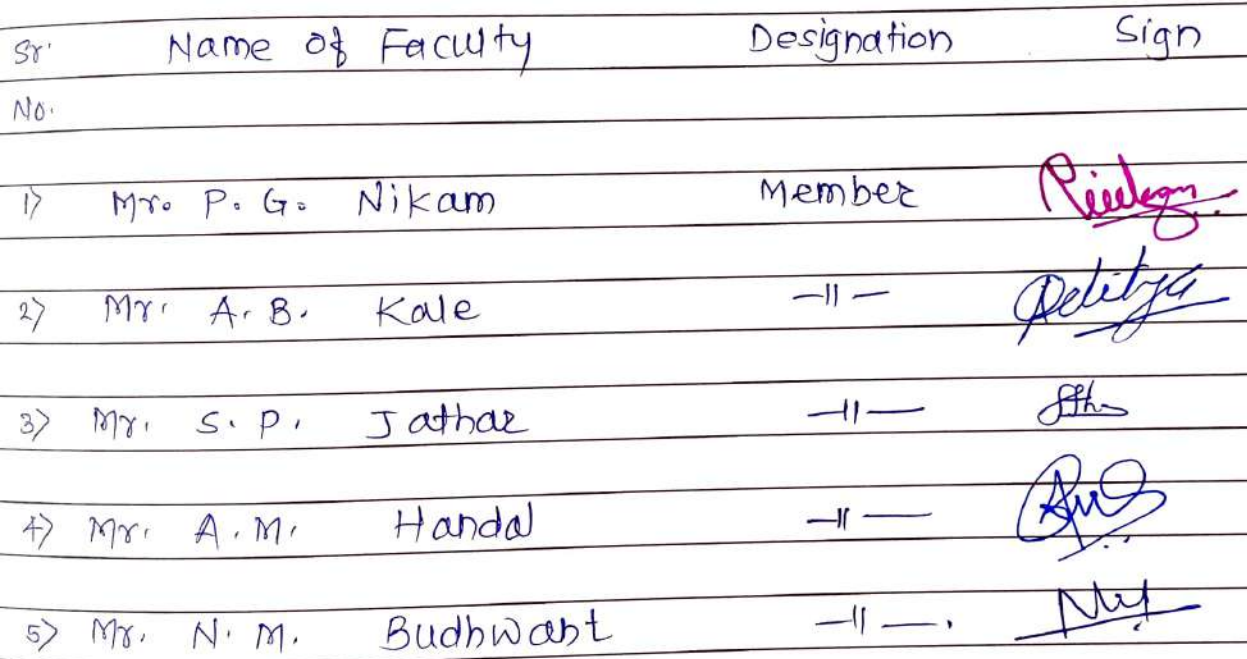 Sr. Name of Faculty Designation Sign
No.
1) Mr. P. G. Nikam Member
2) Mr. A. B. Kale —||— Aditya
3) Mr. S. P. Jathar —||—
4) Mr. A. M. Handal —||—
5) Mr. N. M. Budhwant —||—.